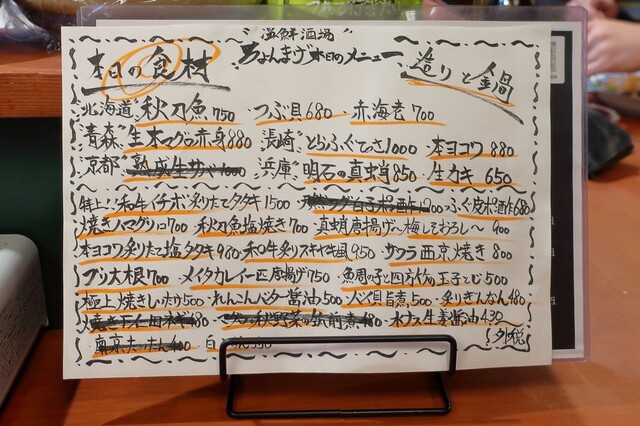 海鮮酒場
本日の食材 ちょんまげ本日のメニュー 造りと鍋
北海道 秋刀魚750 つぶ貝680 赤海老700
青森 生本マグロ赤身880 長崎 とらふぐてっさ1000 本ヨコワ880
京都 熟成生サバ1000 兵庫 明石の真蛸850 生カキ650
特上!和牛イチボ炙りたタタキ1500 ふぐ皮ポン酢680
焼きハマグリ700 秋刀魚塩焼き700 真蛸唐揚げ〜梅しそおろし〜900
本ヨコワ炙りたて塩タタキ980 和牛炙りスキヤキ風950 サワラ西京焼き800
ブリ大根700 メイタカレイ一匹唐揚げ750 魚周の子と四方竹の玉子とじ500
極上焼きしいたけ500 れんこんバター醤油500 つぶ貝旨煮500 炙りぎんなん480
水ナス生姜醤油430
外税